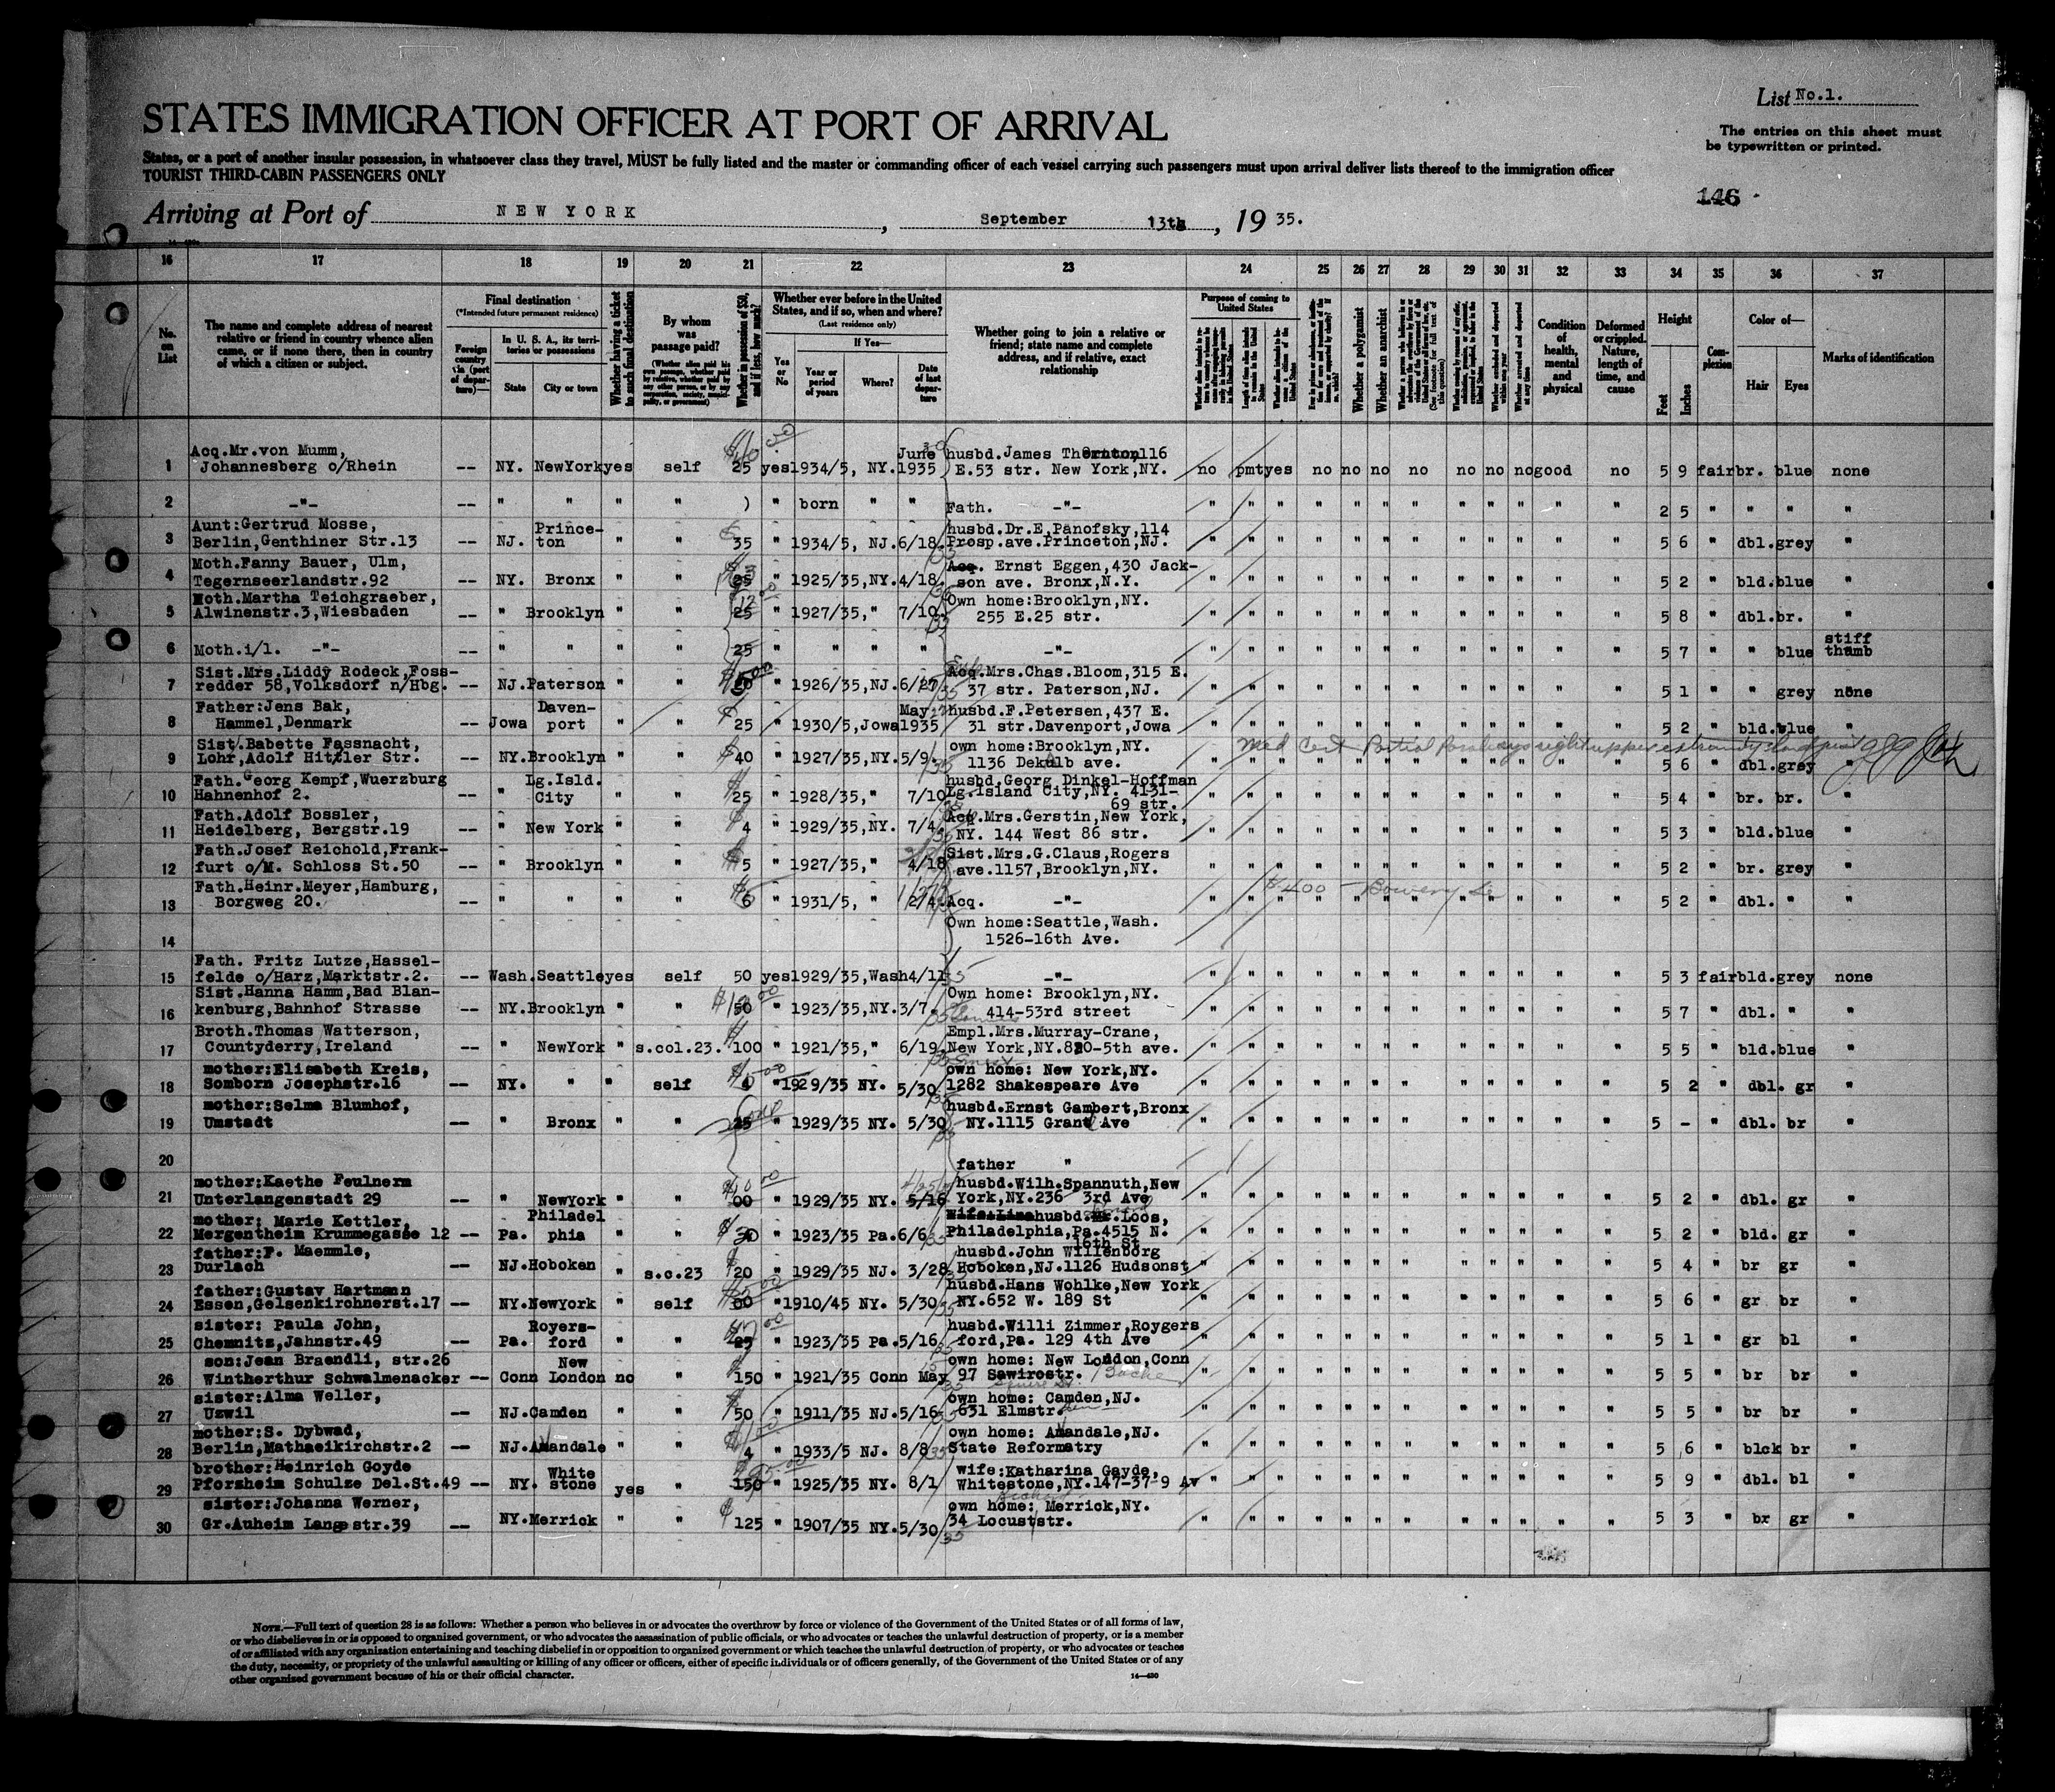 List No.1.
STATES IMMIGRATION OFFICER AT PORT OF ARRIVAL
The entries on this sheet must
be typewritten or printed.
States, or a port of another insular possession, in whatsoever class they travel, MUST be fully listed and the master or commanding officer of each vessel carrying such passengers must upon arrival deliver lists thereof to the immigration officer
TOURIST THIRD-CABIN PASSENGERS ONLY
146
Arriving at Port of NEW YORK, September 13th, 19 35.
16 17 18 19 20 21 22 23 24 25 26 27 28 29 30 31 32 33 34 35 36 37
No. on List
The name and complete address of nearest relative or friend in country whence alien came, or if none there, then in country of which a citizen or subject.
Final destination
(*Intended future permanent residence)
Foreign country in (port of departure)—
In U. S. A., its territories or possessions
State City or town
Whether having a ticket to such final destination
By whom was passage paid?
Whether in possession of $50, and if less, how much?
Whether ever before in the United States, and if so, when and where?
(Last residence only)
Yes or No
If Yes—
Year or period of years
Where?
Date of last departure
Whether going to join a relative or friend; state name and complete address, and if relative, exact relationship
Purpose of coming to United States
Whether a polygamist
Whether an anarchist
Condition of health, mental and physical
Deformed or crippled. Nature, length of time, and cause
Height
Feet Inches
Complexion
Color of—
Hair Eyes
Marks of identification
1 Acq.Mr.von Mumm, Johannesberg o/Rhein -- NY. NewYork yes self 25 yes 1934/5, NY. June 1935 husbd. James Thornton,116 E.53 str. New York,NY. no pmt yes no no no no no no no good no 5 9 fair br. blue none
2 -"- -- " " " " ) " born " " Fath. -"- " " " " " " " " " " " " 2 5 " " " "
3 Aunt:Gertrud Mosse, Berlin,Genthiner Str.13 -- NJ. Princeton " " 35 " 1934/5, NJ. 6/18. husbd.Dr.E,Panofsky,114 Prosp.ave.Princeton,NJ. " " " " " " " " " " " " 5 6 " dbl. grey "
4 Moth.Fanny Bauer, Ulm, Tegernseerlandstr.92 -- NY. Bronx " " 25 " 1925/35,NY. 4/18. Acq. Ernst Eggen,430 Jackson ave. Bronx,N.Y. " " " " " " " " " " " " 5 2 " bld. blue "
5 Moth.Martha Teichgraeber, Alwinenstr.3,Wiesbaden -- " Brooklyn " " 25 " 1927/35," 7/10. Own home:Brooklyn,NY. 255 E.25 str. " " " " " " " " " " " " 5 8 " dbl. br. "
6 Moth.i/l. -"- -- " " " " 25 " " " " -"- " " " " " " " " " " " " 5 7 " " blue stiff thumb
7 Sist.Mrs.Liddy Rodeck,Fossredder 58,Volksdorf n/Hbg. -- NJ. Paterson " " " 1926/35,NJ. 6/27 Acq.Mrs.Chas.Bloom,315 E. 37 str. Paterson,NJ. " " " " " " " " " " " " 5 1 " " grey none
8 Father:Jens Bak, Hammel,Denmark -- Jowa Davenport " " 25 " 1930/5,Jowa May 1935 husbd.F.Petersen,437 E. 31 str.Davenport,Jowa " " " " " " " " " " " " 5 2 " bld. blue "
9 Sist.Babette Fassnacht, Lohr,Adolf Hitler Str. -- NY. Brooklyn " " 40 " 1927/35,NY. 5/9. own home:Brooklyn,NY. 1136 Dekalb ave. " " " " " " " " " " " " 5 6 " dbl. grey
med Cert Partial Paralysis right upper extremity
10 Fath.Georg Kempf,Wuerzburg Hahnenhof 2. -- " Lg.Isld. City " " 25 " 1928/35," 7/10 husbd.Georg Dinkel-Hoffman Lg.Island City,NY. 4131-69 str. " " " " " " " " " " " " 5 4 " br. br. "
11 Fath.Adolf Bossler, Heidelberg, Bergstr.19 -- " New York " " 4 " 1929/35,NY. 7/4. Acq.Mrs.Gerstin,New York, NY. 144 West 86 str. " " " " " " " " " " " " 5 3 " bld. blue "
12 Fath.Josef Reichold,Frankfurt o/M. Schloss St.50 -- " Brooklyn " " 5 " 1927/35," 4/18 Sist.Mrs.G.Claus,Rogers ave.1157,Brooklyn,NY. " " " " " " " " " " " " 5 2 " br. grey "
13 Fath.Heinr.Meyer,Hamburg, Borgweg 20. -- " " " " 6 " 1931/5, " 2/4. Acq. -"- " " " " " " " " " " " " 5 2 " dbl. " "
$400 - Bowery
14 Own home:Seattle,Wash. 1526-16th Ave.
15 Fath. Fritz Lutze,Hasselfelde o/Harz,Marktstr.2. -- Wash. Seattle yes self 50 yes 1929/35,Wash 4/11 -"- " " " " " " " " " " " " 5 3 fair bld. grey none
16 Sist.Hanna Hamm,Bad Blankenburg,Bahnhof Strasse -- NY. Brooklyn " " 50 " 1923/35,NY. 3/7. Own home: Brooklyn,NY. 414-53rd street " " " " " " " " " " " " 5 7 " dbl. " "
17 Broth.Thomas Watterson, Countyderry,Ireland -- " NewYork " s.col.23. 100 " 1921/35," 6/19. Empl.Mrs.Murray-Crane, New York,NY.820-5th ave. " " " " " " " " " " " " 5 5 " bld. blue "
18 mother:Elisabeth Kreis, Somborn Josephstr.16 -- NY. " " self 4 " 1929/35 NY. 5/30. own home: New York,NY. 1282 Shakespeare Ave " " " " " " " " " " " " 5 2 " dbl. gr "
19 mother:Selma Blumhof, Umstadt -- " Bronx " " 25 " 1929/35 NY. 5/30 husbd.Ernst Gambert,Bronx NY.1115 Grand Ave " " " " " " " " " " " " 5 - " dbl. br "
20 father "
21 mother:Kaethe Feulnern Unterlangenstadt 29 -- " NewYork " " 00 " 1929/35 NY. 5/16 husbd.Wilh.Spannuth,New York,NY.236 3rd Ave " " " " " " " " " " " " 5 2 " dbl. gr "
22 mother: Marie Kettler, Mergentheim Krummegasse 12 -- Pa. Philadelphia " " 30 " 1923/35 Pa. 6/6 husbd. Loos, Philadelphia,Pa.4515 N. 16th St " " " " " " " " " " " " 5 2 " bld. gr "
23 father:F. Maemmle, Durlach -- NJ. Hoboken " s.c.23 20 " 1929/35 NJ. 3/28 husbd.John Willenborg Hoboken,NJ.1126 Hudsonst " " " " " " " " " " " " 5 4 " br gr "
24 father:Gustav Hartmann Essen,Gelsenkirchnerst.17 -- NY. NewYork " self 00 " 1910/45 NY. 5/30 husbd.Hans Wohlke,New York NY.652 W. 189 St " " " " " " " " " " " " 5 6 " gr br "
25 sister: Paula John, Chemnitz,Jahnstr.49 -- Pa. Royersford " " 25 " 1923/35 Pa. 5/16. husbd.Willi Zimmer,Roygersford,Pa. 129 4th Ave " " " " " " " " " " " " 5 1 " gr bl "
26 son:Jean Braendli, str.26 Wintherthur Schwalmenacker -- Conn New London no " 150 " 1921/35 Conn May own home: New London,Conn 97 Sawirostr. " " " " " " " " " " " " 5 5 " br br "
27 sister:Alma Weller, Uzwil -- NJ. Camden " " 50 " 1911/35 NJ. 5/16 own home: Camden,NJ. 631 Elmstr. " " " " " " " " " " " " 5 5 " br br "
28 mother:S. Dybwad, Berlin,Mathaeikirchstr.2 -- NJ. Anandale " " 4 " 1933/5 NJ. 8/8 own home: Anandale,NJ. State Reformatry " " " " " " " " " " " " 5 6 " blck br "
29 brother:Heinrich Goyde Pforzheim Schulze Del.St.49 -- NY. White stone yes " 150 " 1925/35 NY. 8/1 wife:Katharina Geyde, Whitestone,NY.147-37-9 Av " " " " " " " " " " " " 5 9 " dbl. bl "
30 sister:Johanna Werner, Gr.Auheim Langestr.39 -- NY. Merrick " " 125 " 1907/35 NY. 5/30 own home: Merrick,NY. 34 Locuststr. " " " " " " " " " " " " 5 3 " br gr "
NOTE.—Full text of question 28 is as follows: Whether a person who believes in or advocates the overthrow by force or violence of the Government of the United States or of all forms of law,
or who disbelieves in or is opposed to organized government, or who advocates the assassination of public officials, or who advocates or teaches the unlawful destruction of property, or is a member
of or affiliated with any organization entertaining and teaching disbelief in or opposition to organized government or which teaches the unlawful destruction of property, or who advocates or teaches
the duty, necessity, or propriety of the unlawful assaulting or killing of any officer or officers, either of specific individuals or of officers generally, of the Government of the United States or of any
other organized government because of his or their official character.
14—430